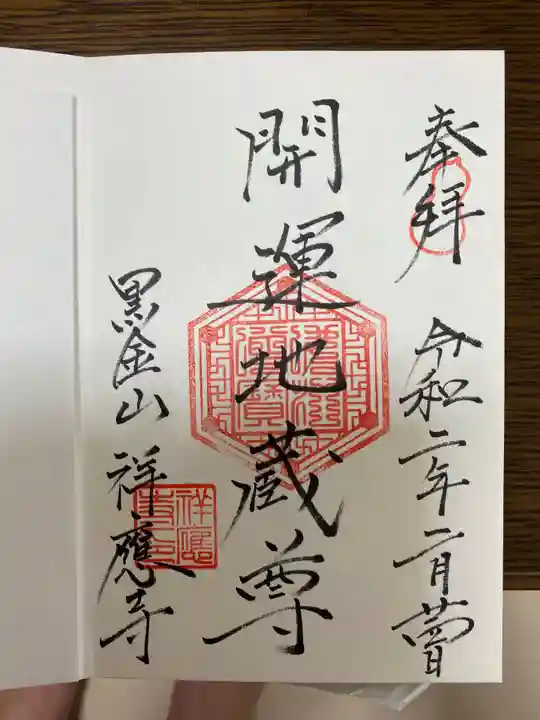 奉拜
令和二年二月
開運地蔵尊
黒金山 祥應寺
祥應
寺印